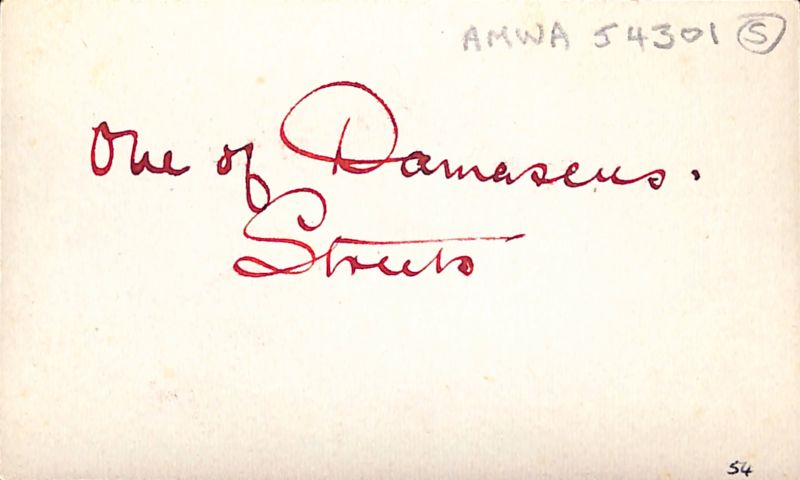 AMWA 54301 S
One of Damascus.
Streets
54